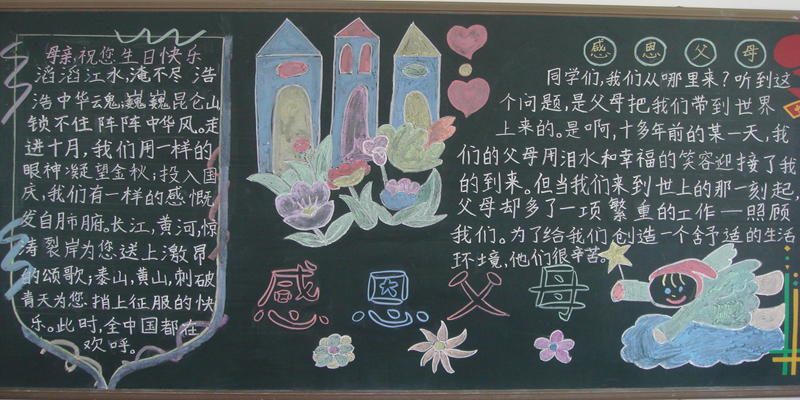 母亲,祝您生日快乐
滔滔江水,淹不尽 浩
浩中华云魂;巍巍昆仑山
锁不住阵阵中华风。走
进十月,我们用一样的
眼神凝望金秋;投入国
庆,我们有一样的感慨
发自肺腑。长江,黄河,惊
涛裂岸为您送上激昂
的颂歌;泰山,黄山,刺破
青天为您捎上征服的快
乐。此时,全中国都在
欢呼。
感恩父母
同学们,我们从哪里来?听到这
个问题,是父母把我们带到世界
上来的。是啊,十多年前的某一天,我
们的父母用泪水和幸福的笑容迎接了我
的到来。但当我们来到世上的那一刻起,
父母却多了一项繁重的工作—照顾
我们。为了给我们创造一个舒适的生活
环境,他们很辛苦。
感恩父母